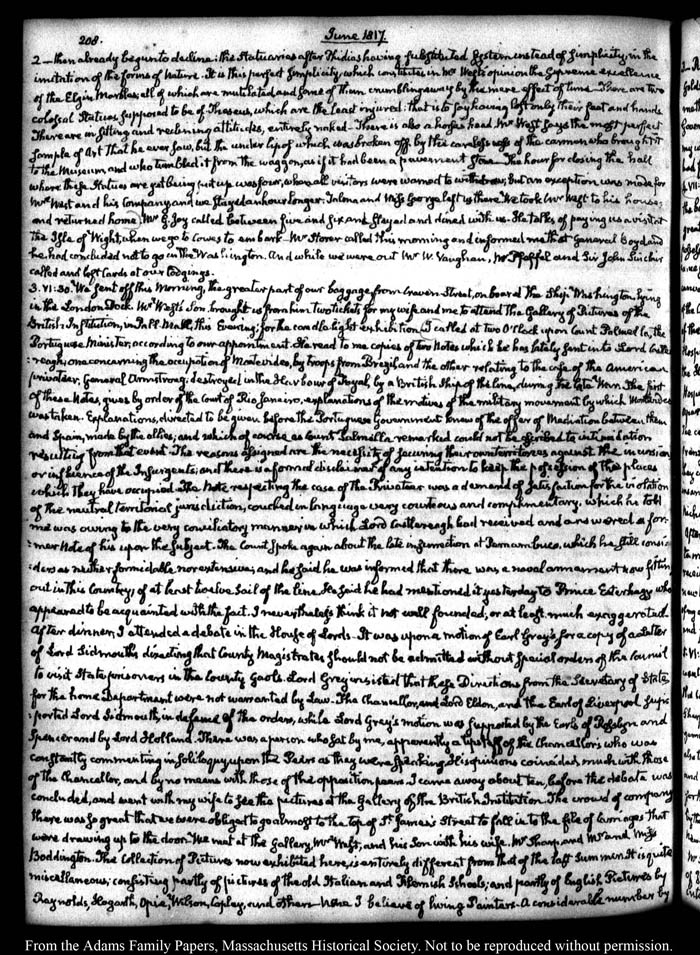 208. June 1817.
2 — then already begun to decline: the Statuaries after Phidias having substituted System instead of Simplicity, in the
imitation of the forms of Nature. It is this perfect Simplicity, which constitutes in Mr West's opinion the Supreme excellence
of the Elgin Marbles; all of which are mutilated and some of them crumbling away by the mere effect of time. There are two
colossal Statues, supposed to be of Theseus, which are the least injured: that is to say having lost only their feet and hands.
There are in sitting and reclining attitudes, entirely naked. There is also a horse's head Mr West says the most perfect
sample of Art that he ever saw, but the under lip of which was broken off, by the careless of the carmen who brought it
to the Museum and who tumbled it from the waggon, as if it had been a pavement stone. The hour for closing the hall
where these Statues are yet being put up was four, when all visitors were warned to withdraw; but an exception was made for
Mr West and his Company and we stayed an hour longer. and George left us there. We took Mr West to his house;
and returned home. Mr G. Joy called between five and six and stayed and dined with us. He talks of paying us a visit at
the Isle of Wight, when we go to Cowes to embark. Mr Storer called this morning and informed me that General Boyd and
he had concluded not to go in the Washington. And while we were out Mr W. Vaughan, Mr Pfaffel and Sir John Sinclair
called and left Cards at our lodgings.
3. VI:30. We sent off this morning, the greater part of our baggage, from Craven Street, on board the Ship Washington, lying
in the London Dock. Mr West's Son, brought us from him two tickets for my wife and me to attend the Gallery of Pictures of the
British Institution, in Pall Mall, this Evening; for the candlelight exhibition. I called at two O'Clock upon Count Palmella, the
Portuguese Minister, according to our appointment. He read to me copies of two Notes which he has lately sent in to Lord Castle
:reagh; one concerning the occupation of Montevideo, by troops from Brazil and the other relating to the case of the American
privateer, General Armstrong, destroyed in the Harbour of Fayal, by a British Ship of the line, during the late War. The first
of these Notes, gives by order of the Court of Rio Janeiro, explanations of the motives of the military movement by which Montevideo
was taken. Explanations, directed to be given before the Portuguese Government knew of the offer of Mediation between them
and Spain, made by the allies; and which of course as Count Palmella remarked could not be ascribed to intimidation
resulting from that event. The reasons assigned are the necessity of securing their own territories against the incursion
or influence of the Insurgents; and there is a formal disclaimer of any intention to keep the possession of the places
which they have occupied. The Note respecting the case of the Privateer was a demand of satisfaction for the violation
of the neutral territorial jurisdiction, couched in language very courteous and complimentary, which he told
me was owing to the very conciliatory manner in which Lord Castlereagh had received and answered a for-
:mer Note of his upon the Subject. The Count spoke again about the late insurrection at Pernambuco, which he still consi-
:ders as neither formidable, nor extensive; and he said he was informed that there was a naval armament now fitting
out in this Country, of at least twelve Sail of the line. He said he had mentioned it yesterday to Prince Esterhazy who
appeared to be acquainted with the fact. I nevertheless think it not well founded, or at least much exaggerated.
After dinner, I attended a debate in the House of Lords. It was upon a motion of Earl Grey's for a copy of a Letter
of Lord Sidmouth's directing that County Magistrates should not be admitted without special orders of the Council
to visit State prisoners in the County Gaols. Lord Grey insisted that these Directions from the Secretary of State
for the home Department were not warranted by Law. The Chancellor, Lord Eldon, and the Earl of Liverpool sup-
:ported Lord Sidmouth, in defense of the orders, while Lord Grey's motion was supported by the Earls of Rosslyn and
Spencer and by Lord Holland. There was a person who sat by me, apparently a tipstaff of the Chancellor's who was
constantly commenting in soliloquy upon the Peers as they were speaking. His opinions coincided much with those
of the Chancellor, and by no means with those of the opposition peers. I came away about ten, before the debate was
concluded, and went with my wife to see the pictures at the Gallery of the British Institution. The crowd of company
there was so great that we were obliged to go almost to the top of St. James's Street to fall in to the file of carriages that
were drawing up to the door. We met at the Gallery, Mr West, and his Son with his wife. Mr Sharp and Mr and Miss
Boddington. The Collection of Pictures now exhibited here, is entirely different from that of the last Summer. It is quite
miscellaneous; consisting partly of pictures of the old Italian and Flemish Schools; and partly of English Pictures by
Reynolds, Hogarth, Opie, Wilson, Copley, and others. None I believe of living Painters. A considerable number by
From the Adams Family Papers, Massachusetts Historical Society. Not to be reproduced without permission.